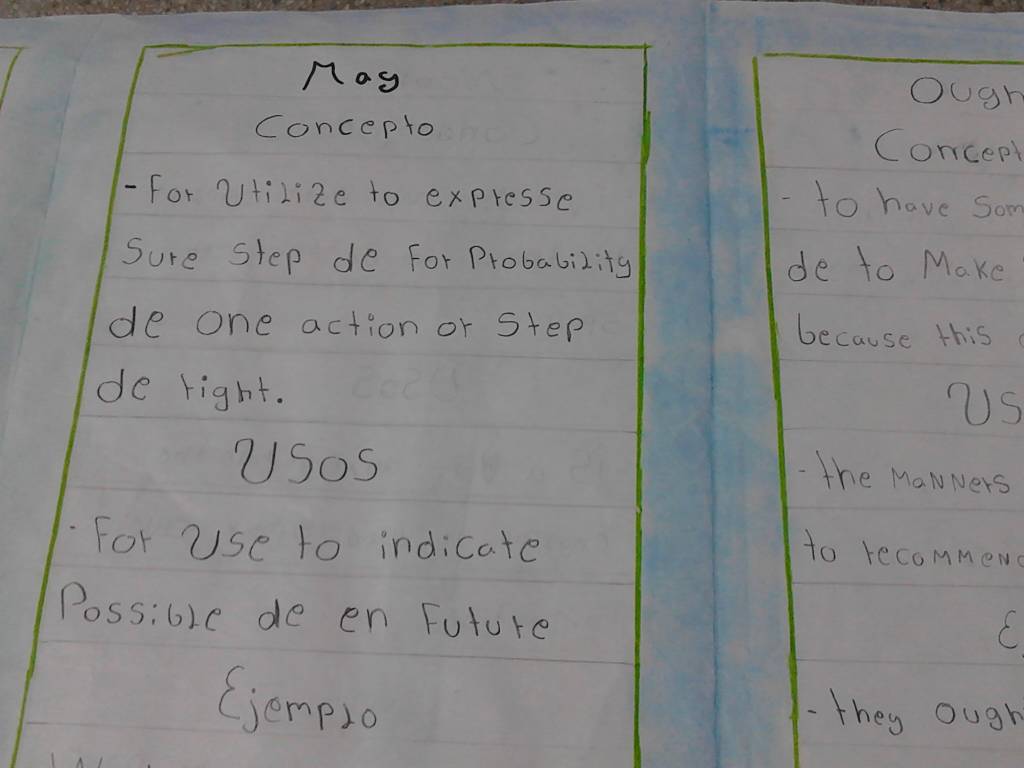 May
Concepto
- For Utilize to expresse
Sure Step de For Probability
de one action or Step
de right.
Usos
- For Use to indicate
Possible de en Future
Ejemplo
Ough
Concept
- to have Som
de to Make
because this
Us
- the MaNNers
to recommend
- they Ough